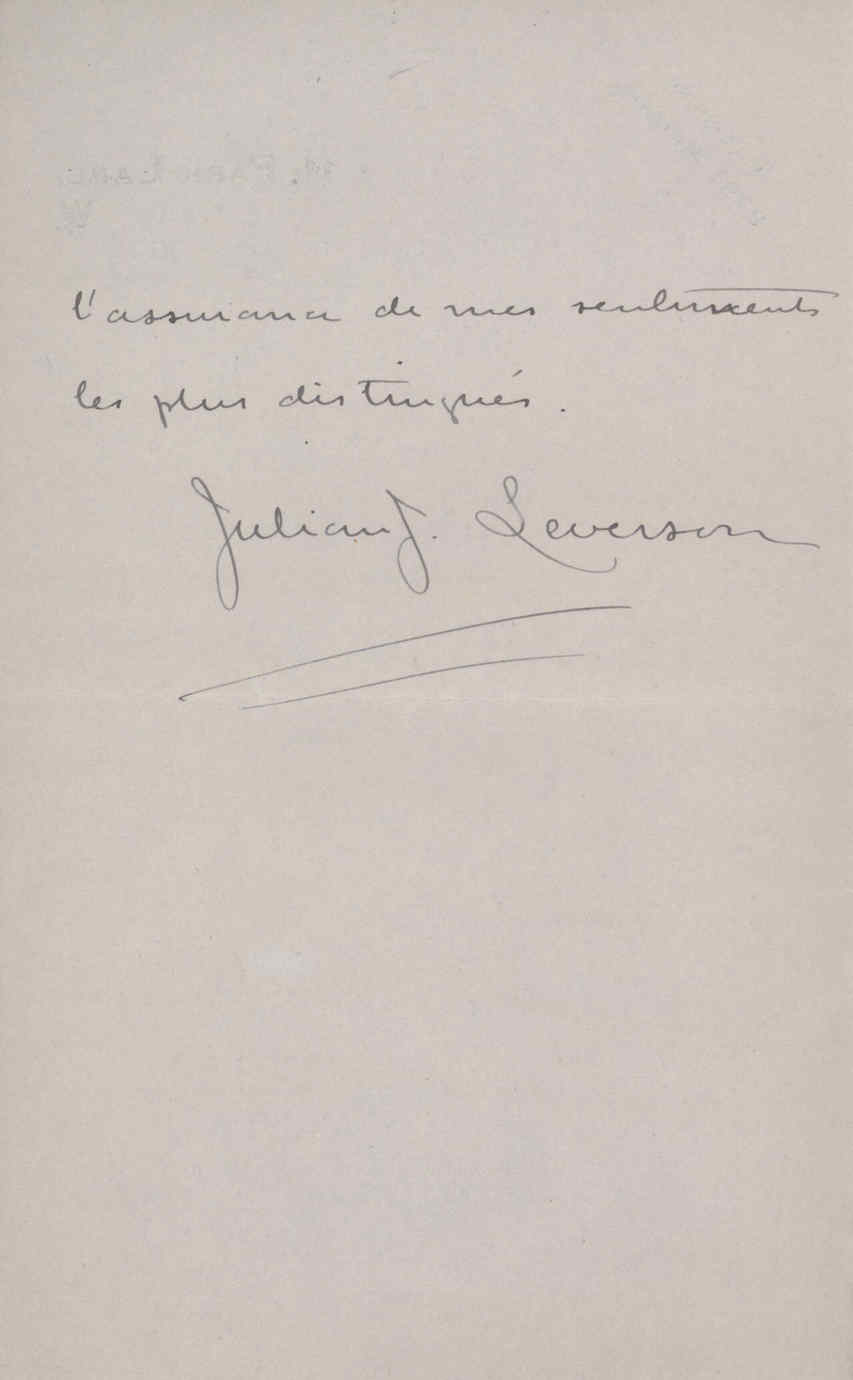 l'assurance de mes sentiments
les plus distingués.
Julian J. Leverson